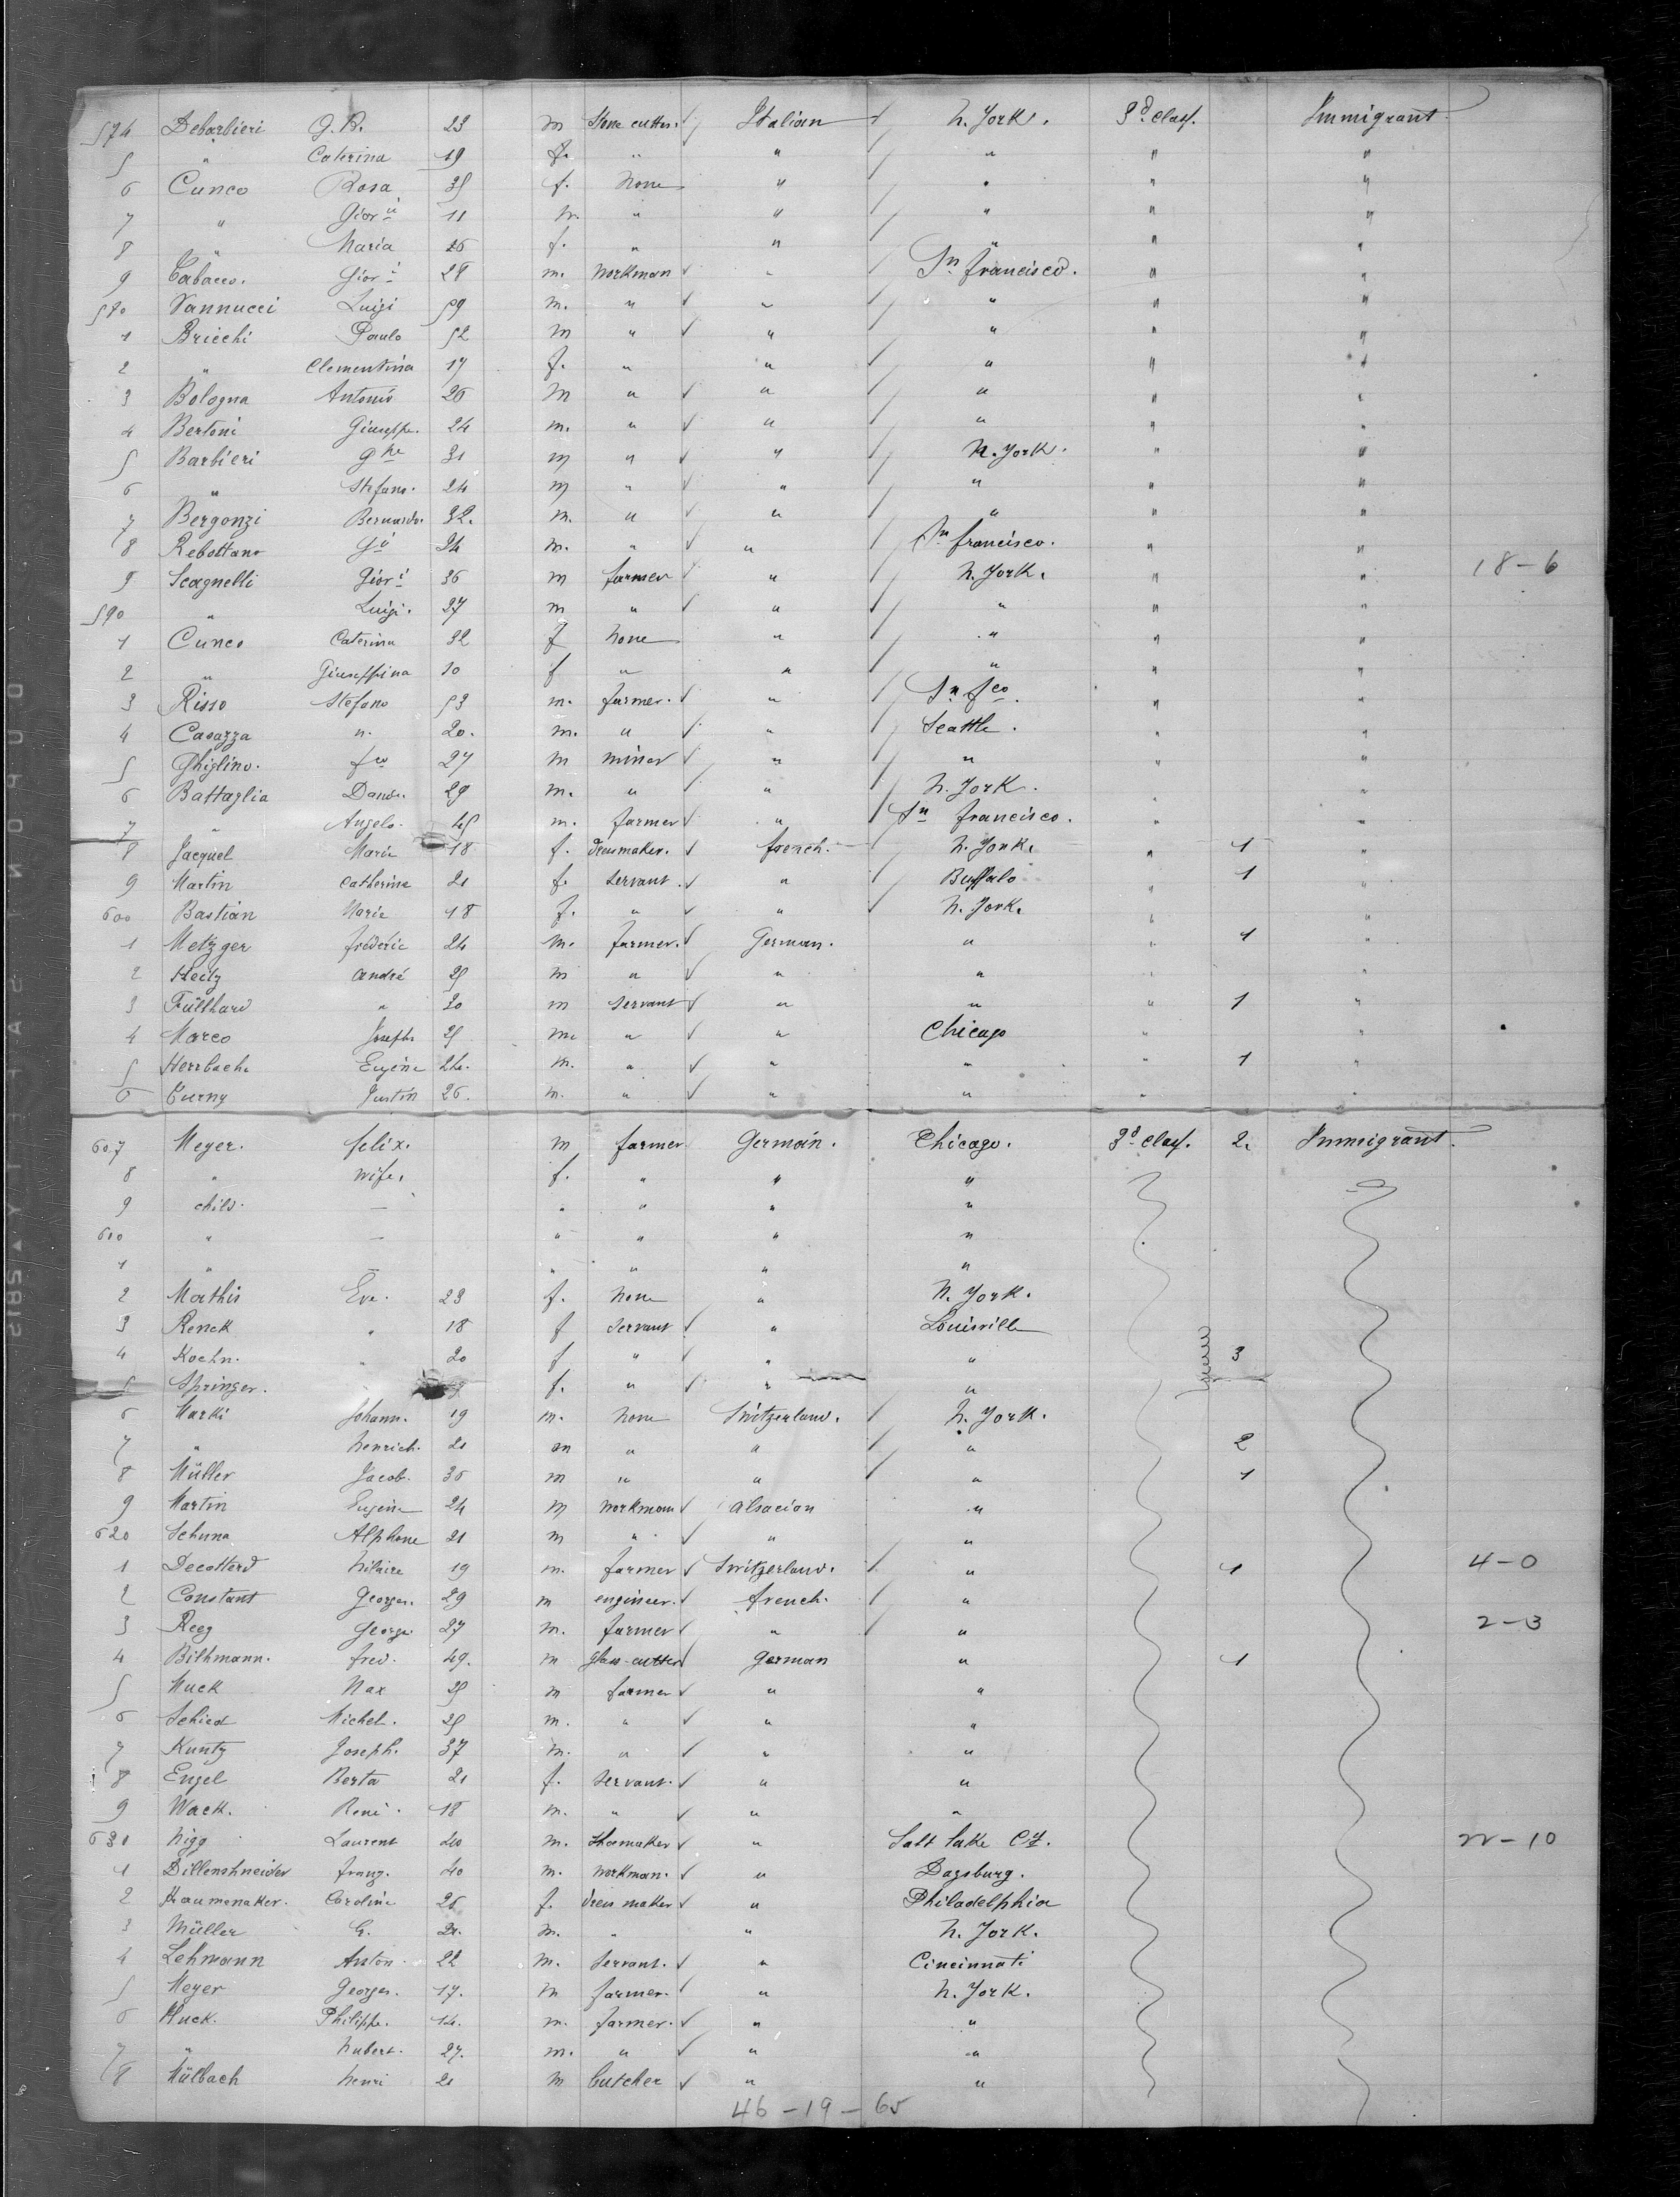 574 Debarbieri G.B. 23 m Stone cutter. Italian N. York. 3d Class. Immigrant
5 " Caterina 19 f. " " " " "
6 Cuneo Rosa 35 f. None " " " "
7 " Giori 11 m. " " " " "
8 " Maria 26 f. " " " " "
9 Cabacco. Giori 28 m. Workman " Sn francisco. " "
580 Vannucci Luigi 59 m. " " " " "
1 Bricchi Paulo 52 m " " " " "
2 " Clementina 17 f. " " " " "
3 Bologna Antonio 26 m " " " " "
4 Bertoni Giuseppe. 24 m. " " " " "
5 Barbieri Gpe 31 m " " N. York. " "
6 " Stefano. 24 m " " " " "
7 Bergonzi Bernardo. 32. m. " " " " "
8 Rebottaro Gi 24 m. " " Sn francisco. " "
9 Scagnelli Giori 36 m farmer " N. York. " " 18-6
590 " Luigi. 27 m " " " " "
1 Cuneo Caterina 32 f None " " " "
2 " Giuseppina 10 f " " " " "
3 Risso Stefano 53 m. farmer. " Sn fco. " "
4 Casazza n. 20. m. " " Seattle. " "
5 Ghiglino. fco 27 m miner " " " "
6 Battaglia Davide. 29 m. " " N. York. " "
7 " Angelo. 45 m. farmer " Sn francisco. " "
8 Jacquel Marie 18 f. dressmaker. french. N. York. " 1 "
9 Martin Catherine 21 f. servant. " Buffalo " 1 "
600 Bastian Marie 18 f. " " N. York. " "
1 Metzger fréderic 24 m. farmer. German. " " 1 "
2 Heitz andré 25 m " " " " "
3 Fülthard " 30 m servant " " " 1 "
4 Marco Joseph 25 m. " " Chicago " "
5 Herrbach. Eugène 24. m. " " " " 1 "
6 Curny Justin 26. m. " " " " "
607 Meyer. felix. m farmer German. Chicago. 3d Class. 2. Immigrant.
8 " wife. f. " " "
9 child. — " " " "
610 " — " " " "
1 " — " " " "
2 Mathis Eve. 23 f. None " N. York.
3 Renck " 18 f servant " Louisville
4 Koehn. " 20 f " " " 3
5 Springer. f. " " "
6 Marki Johann. 19 m. None Switzerland. N. York.
7 " henrich. 21 m " " " 2
8 Müller Jacob. 36 m " " " 1
9 Martin Eugène 24 m workman alsacian "
620 Schuna Alphonse 21 m " " "
1 Decotterd hilaire 19 m. farmer Switzerland. " 1 4-0
2 Constant Georges. 29 m engineer. french. "
3 Reeg George 27 m. farmer " " 2-3
4 Bilhmann. fred. 49. m glass-cutter German " 1
5 Muck Max 25 m farmer " "
6 Schied Michel. 25 m. " " "
7 Kuntz Joseph. 37 m. " " "
8 Engel Berta 21 f. servant. " "
9 Wack. René. 18 m. " " "
630 Nigg Laurent 20 m. Shoemaker " Salt Lake Cy. 22-10
1 Dillenshneider franz. 40 m. workman. " Dagsburg.
2 Kaumenaker. Caroline 26 f. dress maker " Philadelphia
3 Müller G. 21. m. " " N. York.
4 Lehmann Anton 22 m. servant. " Cincinnati
5 Meyer Georges. 17. m farmer. " N. York.
6 Huck. Philippe. 14. m. farmer. " "
7 " hubert. 27. m. " " "
8 Mülbach henri 21 m butcher " "
46-19-65